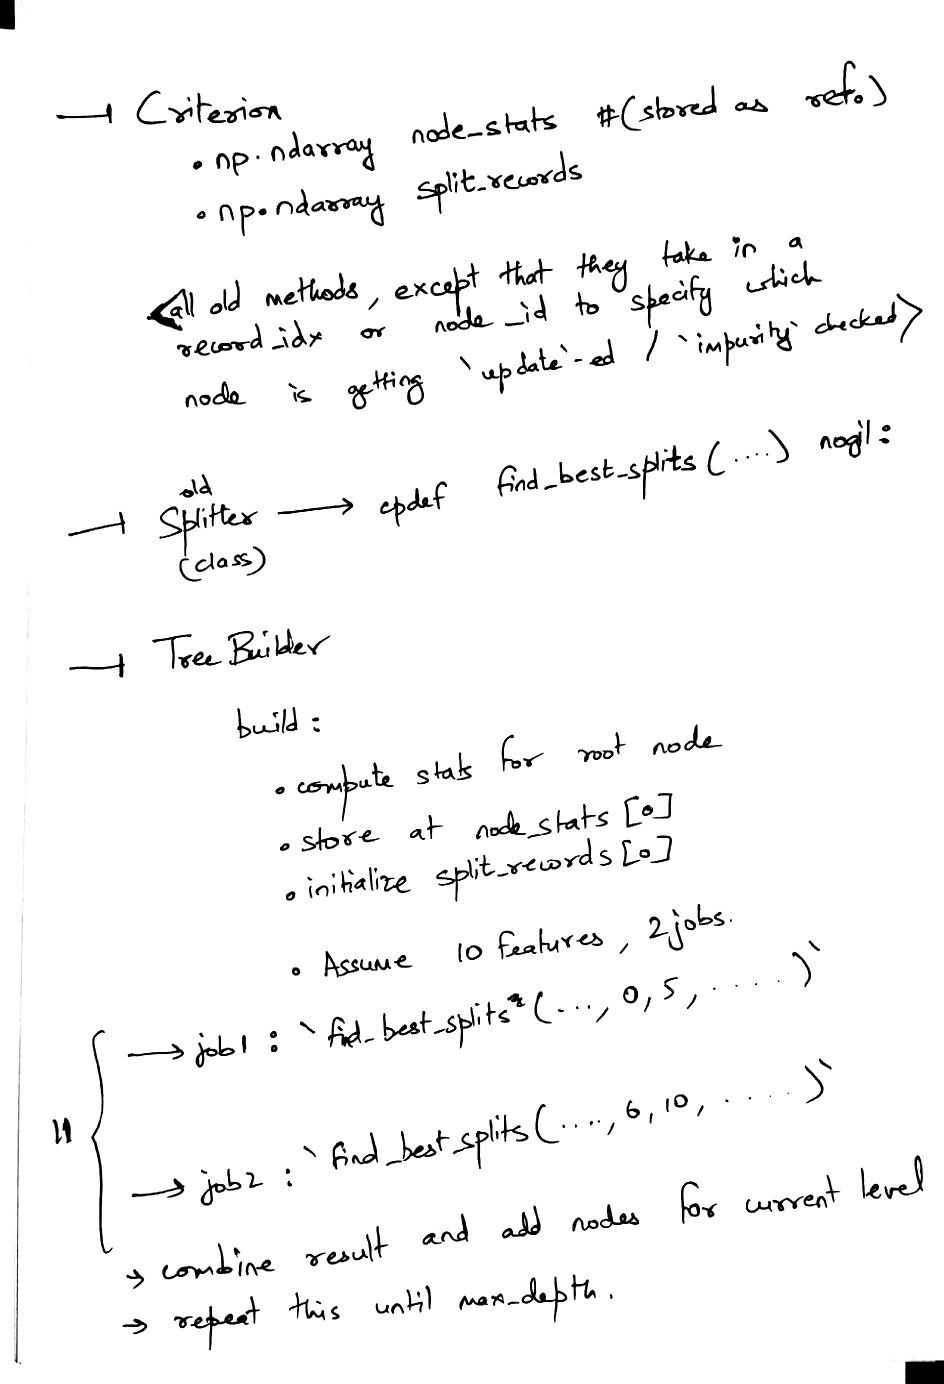 → Criterion
• np.ndarray node_stats #(stored as ref.)
• np.ndarray split_records
<all old methods, except that they take in a
record_idx or node_id to specify which
node is getting `update`-ed / `impurity` checked>
→ old Splitter (class) → cpdef find_best_splits (....) nogil:
→ Tree Builder
build :
• compute stats for root node
• store at node_stats [0]
• initialize split_records [0]
• Assume 10 features, 2 jobs.
→ job1 : `fid_best_splits (..., 0, 5, .....)`
→ job2 : `find_best_splits (...., 6, 10, .....)`
→ combine result and add nodes for current level
→ repeat this until max_depth.